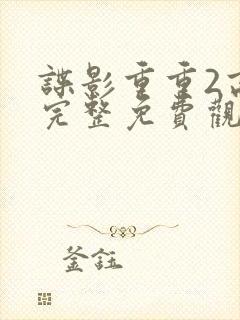 諜影重重2高
完整免費觀
釜鈺